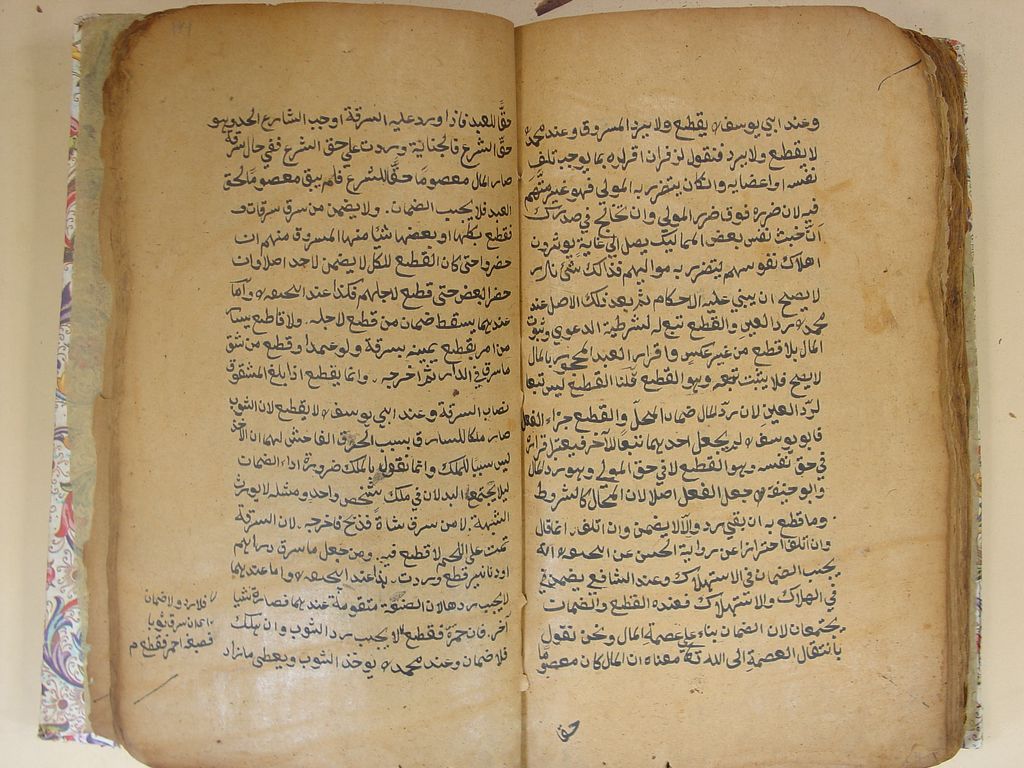 وعند ابي يوسف يقطع ولا يرد المسروق وعند محمد
لا يقطع ولا يرد فنقول لزفر ان اقراره بما يوجب تلف
نفسه واعضايه وان كان يتضرر به المولي فهو غير متهم
فيه لان ضرره فوق ضرر المولي وان تخالج في صدرك
ان خبث نفس بعض المماليك يصل الي غاية يوثرون
اهلاك نفوسهم ليتضرر به مواليهم فذالك شئ نادر
لا يصح ان يبني عليه الاحكام ثم بعد ذلك الاصل عند
محمد رد العين والقطع تبع له لشرطية الدعوي وثبوت
المال بلا قطع من غير عكس واقرار العبد المحجور بالمال
لا يصح فلا يثبت تبعه وهو القطع قلنا القطع ليس تبعا
لرد العين لان رد المال ضمان المحل والقطع جزاء الفعل
فابو يوسف لم يجعل احديهما تبعا للآخر فيعتبر اقراره
في حق نفسه وهو القطع لا في حق المولي وهو رد المال
وابو حنيفة جعل الفعل اصلا لان المحال كالشروط
وما قطع به ان بقي رد والا لا يضمن وان اتلف انما قال
وان اتلف احترازا عن رواية الحسن عن ابي حنيفة انه
يجب الضمان في الاستهلاك وعند الشافعي يضمن في
في الهلاك والاستهلاك فعنده القطع والضمان
يجتمعان لان الضمان بناء على عصمة المال ونحن نقول
بانتقال العصمة الى الله تعالى معناه ان المال كان معصوما
حقا
حقا للعبد فاذا ورد عليه السرقة اوجب الشارع الحد وهو
حق الشرع فالجناية وردت على حق الشرع ففي حال سرقة
صار المال معصوما حقا للشرع فلم يبق معصوما لحق
العبد فلا يجب الضمان ولا يضمن من سرق سرقات و
فقطع بكلها او بعضها شيا منها المسروق منهم ان
حضروا حتى كان القطع للكل لا يضمن لاحد اصلا وان
حضر البعض حتى قطع لاجلهم فكذا عند ابي حنيفة واما
عندهما يسقط ضمان من قطع لاجله ولا قاطع يسار
من امر بقطع يمينه بسرقة ولو عمدا وقطع من شق
ما سرق في الدار ثم اخرجه وانما يقطع اذا بلغ المشقوق
نصاب السرقة وعند ابي يوسف لا يقطع لان الثوب
صار ملكا للسارق بسبب الخرق الفاحش لهما ان الاخذ
ليس سببا للملك وانما نقول بالملك ضرورة اداء الضمان
ليلا يجتمع البدلان في ملك شخص واحد ومثله لا يورث
الشبهة لا من سرق شاة فذبح فاخرجه لان السرقة
تمت على اللحم لا قطع فيه ومن جعل ما سرق دراهم
او دنانير قطع وردت هذا عند ابي حنيفة واما عندهما
لا يجب ردها لان الصنعة متقومة عندهما فصارة شيا
آخر فان حمره فقطع لا يجب رد الثوب وان هلك
فلا ضمان وعند محمد يوخذ الثوب ويعطى ما زاد
فلا رد ولا ضمان
ان سرق ثوبا
فصبغه احمر فقطع م